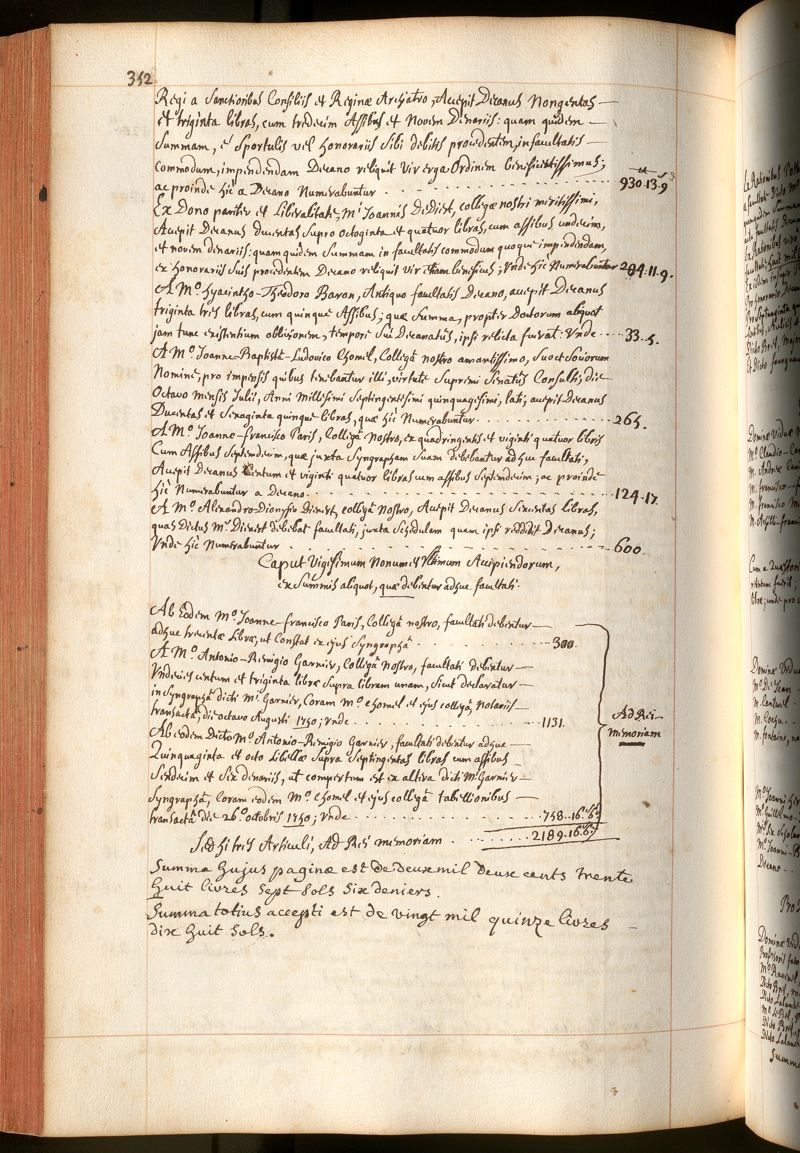 352
Regi a Sanctioribus Consiliis et Reginæ Archiatro, Accepit Decanus Nongentas
et triginta libras, cum tredecim Assibus et Novem Denariis: quam quidem
Summam, è Sportulis vel honorariis Sibi debitis procedentem, in facultatis
Commodum, impendendam Decano reliquit Vir erga Ordinem beneficentissimus;
ac proinde hic a Decano Numerabuntur 930.13.9
Ex Dono pariter et Liberalitate, Mi. Joannis De Diest, collegæ nostri meritissimi,
Accepit Decanus ducentas Supra octoginta et quatuor libras, cum assibus undecim,
et novem denariis: quam quidem Summam in facultatis commodum quoque impendendam,
ex honorariis Suis procedentem Decano reliquit Vir etiam beneficus; Unde hic Numerabuntur 284.11.9.
A Mo. Hyacintho-Theodoro Baron, Antiquo facultatis Decano, accepit Decanus
triginta tres libras, cum quinque Assibus; quæ Summa, propter Doctorum aliquot
jam tunc existentium oblivionem, tempore Sui Decanatûs, ipsi relicta fuerat. Unde 33.5.
A Mo. Joanne-Baptistâ-Ludovico Chomel, Collegâ nostro amantissimo, Suo et Sociorum
Nomine, pro impensis quibus tenebantur illi, virtute Supremi Senatûs Consulti, die
Octavo mensis Julii, Anni Millesimi Septingentesimi quinquagesimi, lati, accepit Decanus
Ducentas et Sexaginta quinque libras, quæ hic Numerabuntur 265.
A Mo. Joanne-Francisco Paris, Collegâ Nostro, ex quadringentis et viginti quatuor libris
Cum Assibus Septemdecim, quæ juxta Syngrapham Suam debebantur adhuc facultati,
Accepit Decanus Centum et viginti quatuor libras cum assibus Septemdecim; ac proinde
hic Numerabuntur a Decano 124.17.
A Mo. Alexandro-Dionysio Dienert, collegâ Nostro, Accepit Decanus Sexcentas libras,
quas Dictus Mr. Dienert debebat facultati, juxta Schedulam quam ipsi reddidit Decanus;
Unde hic Numerabuntur 600.
Caput Vigesimum Nonum et Ultimum Accipiendorum,
ex Summis aliquot, quæ debentur adhuc facultati.
Ab Eodem Mo. Joanne-Francisco Paris, Collegâ nostro, facultati debentur
adhuc trecentæ Libræ, ut Constat ex ejus Syngraphâ 300.
A Mo. Antonio-Remigio Garnier, Collegâ Nostro, facultati debentur
Undecies centum et triginta libræ Supra libram unam, Sicut declaratur
in Syngraphâ dicti Mi. Garnier, Coram Mo. Chomel et ejus collegâ, Notariis
transactâ, die octavo Augusti 1750; Unde 1131.
Ab eodem Dicto Mo. Antonio-Remigio Garnier, facultati debentur adhuc
Quinquaginta et octo Libellæ Supra Septingentas libras cum assibus
Sexdecim et Sex denariis, ut compertum est ex altera dicti Mi. Garnier
Syngraphâ, Coram eodem Mo. Chomel et ejus collegâ tabellionibus
transactâ die 26o. octobris 1750; Unde 758.16.s 6d
Ad Rei
memoriam
Sed hi tres Articuli, Ad Rei memoriam 2189.16.6d
Summa hujus paginæ est de deux mil deux cents trente
huit livres Sept Sols Six deniers.
Summa totius accepti est de vingt mil quinze livres
dix huit Sols.